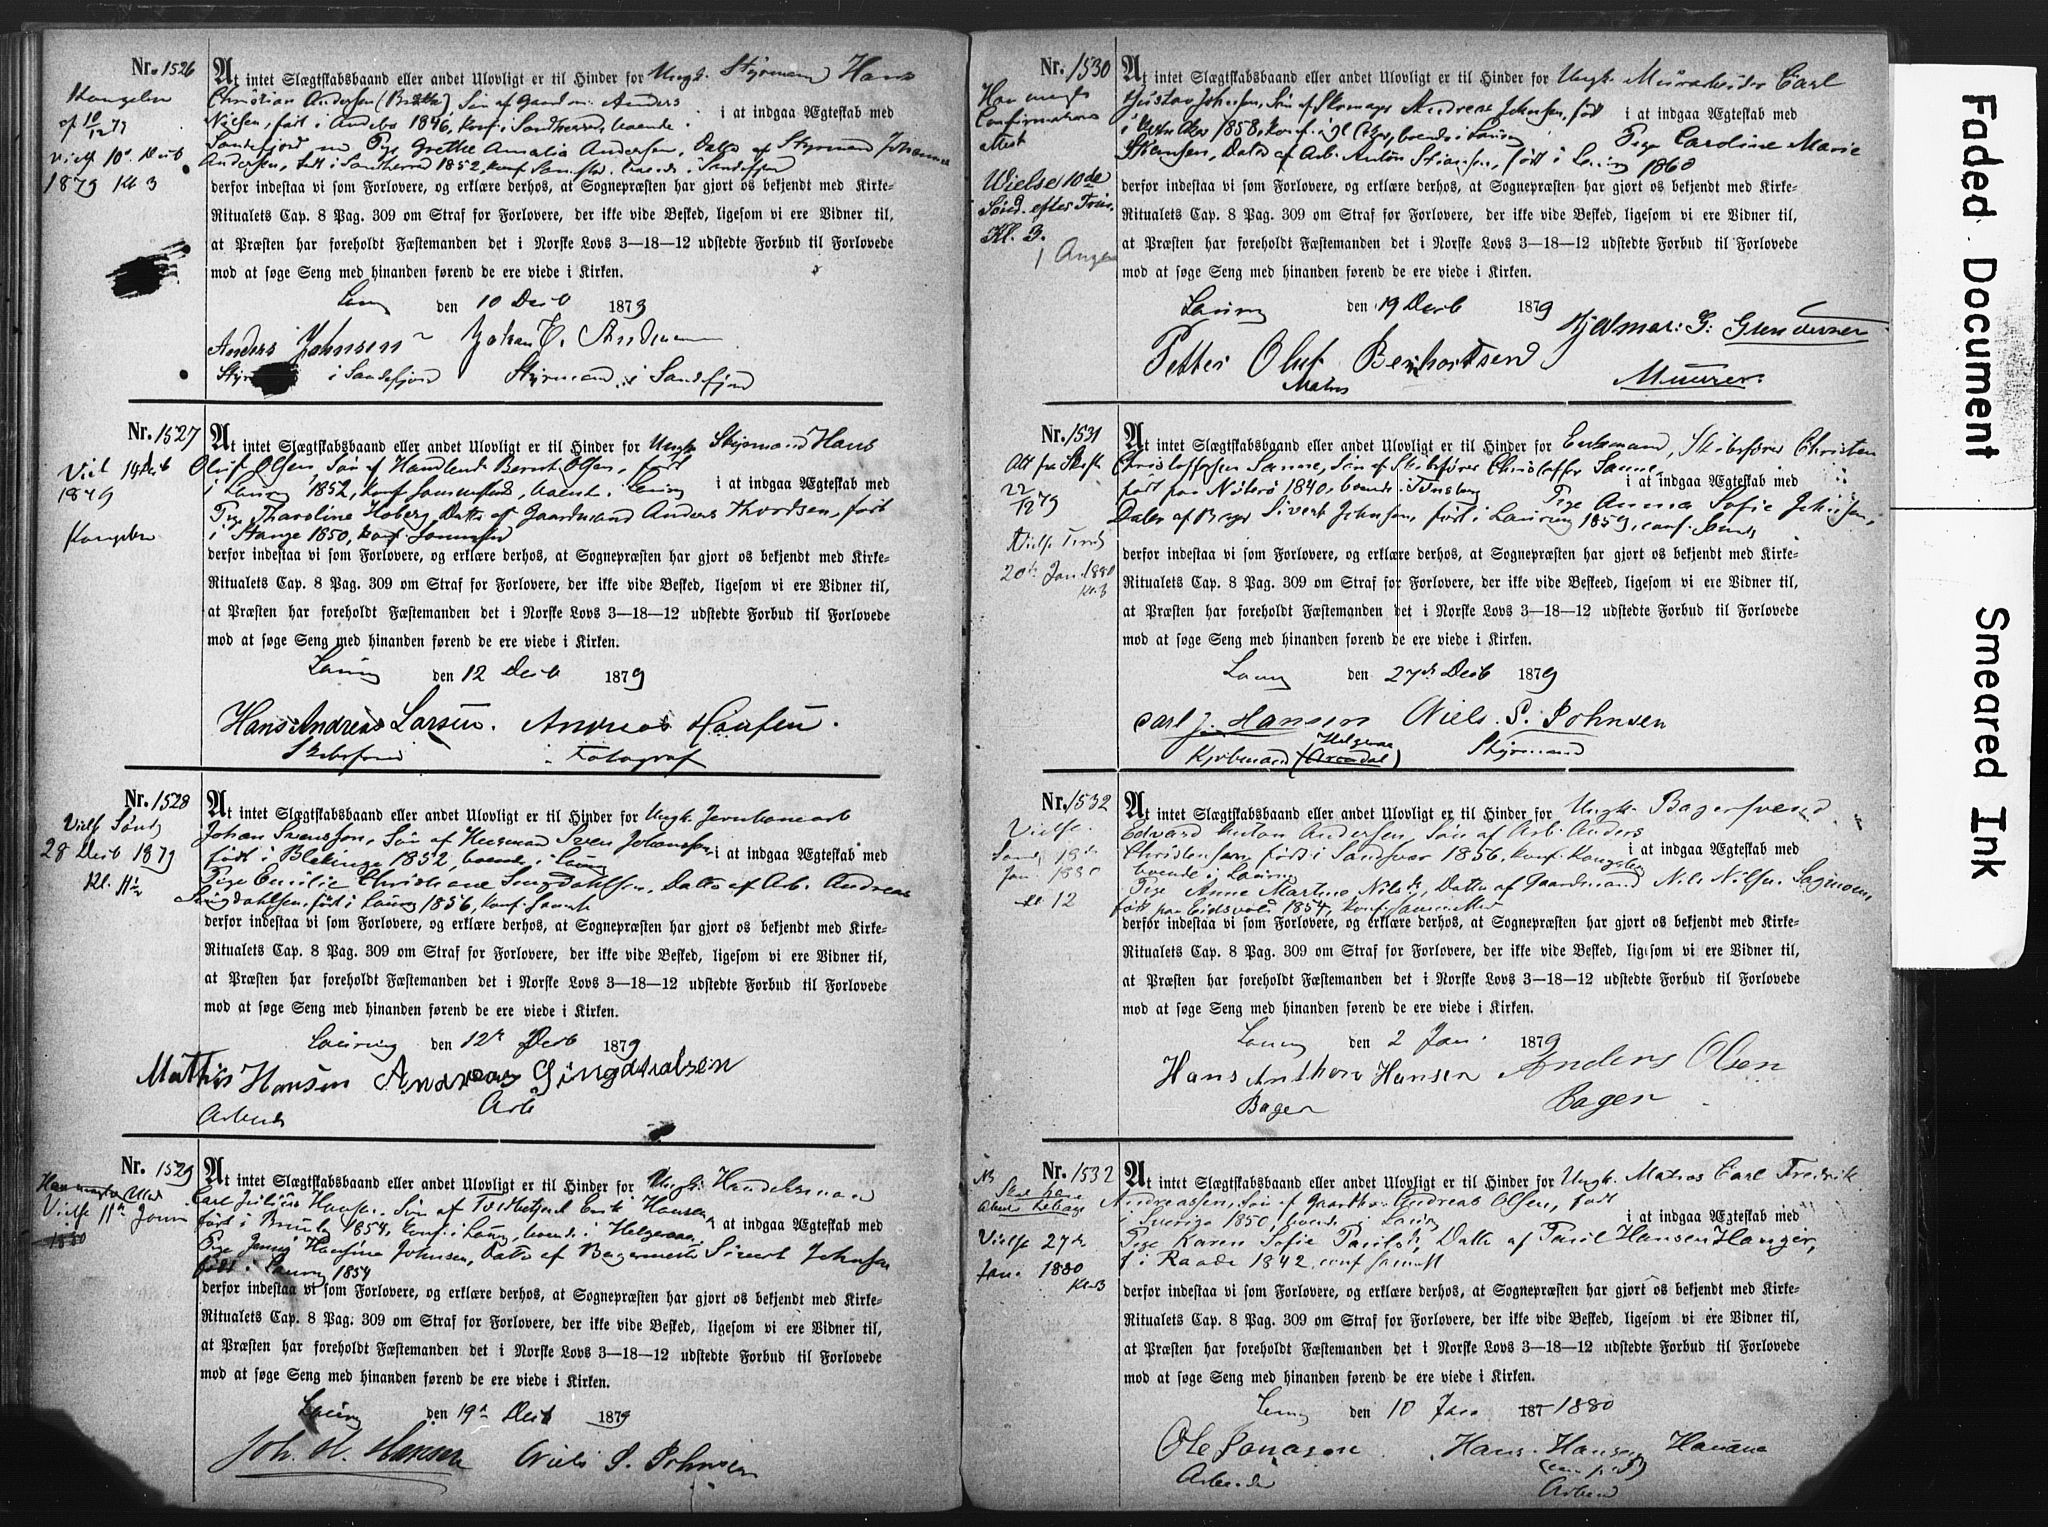 Nr. 1526
Kongelev
af 10/12 79
Vielse 10de Decb
1879 Kl 3
At intet Slægtskabsbaand eller andet Ulovligt er til Hinder for Ungk. Styrmand Hans
Christian Andersen Søn af Gaardm. Anders
Nielsen, født i Andebo 1846, konf. i Sandherred, boende i at indgaa Ægteskab med
Sandefjord Pige Grethe Amalia Andersen, Datter af Styrmand Johannes
Andersen, født i Sandherred 1852, konf. samsteds boende i Sandefjord
derfor indestaa vi som Forlovere, og erklære derhos, at Sognepræsten har gjort os bekjendt med Kirke-
Ritualets Cap. 8 Pag. 309 om Straf for Forlovere, der ikke vide Besked, ligesom vi ere Vidner til,
at Præsten har foreholdt Fæstemanden det i Norske Lovs 3—18—12 udstedte Forbud til Forlovede
mod at søge Seng med hinanden førend de ere viede i Kirken.
den 10 Decb 1879
Anders Johnsen Johan E. Andersen
i Sandefjord Styrmand i Sandefjord
Nr. 1527
Viet 14 Decb
1879
Kongelev
At intet Slægtskabsbaand eller andet Ulovligt er til Hinder for Ungk Styrmand Hans
Oluf Olsen, Søn af Handlende Bernt Olsen, født
i Laurvig 1852, konf. sammesteds, boende i Laurvig i at indgaa Ægteskab med
Pige Tharoline Hoberg Datter af Gaardmand Anders Thordsen, født
i Stange 1850, konf.
derfor indestaa vi som Forlovere, og erklære derhos, at Sognepræsten har gjort os bekjendt med Kirke-
Ritualets Cap. 8 Pag. 309 om Straf for Forlovere, der ikke vide Besked, ligesom vi ere Vidner til,
at Præsten har foreholdt Fæstemanden det i Norske Lovs 3—18—12 udstedte Forbud til Forlovede
mod at søge Seng med hinanden førend de ere viede i Kirken.
Laurvig den 12 Decb 1879
Hans Andreas Larsen. Andreas Hansen.
Skibsfører Fotograf
Nr. 1528
Vielse Sønd
28 Decb 1879
Kl. 11½
At intet Slægtskabsbaand eller andet Ulovligt er til Hinder for Ungk. Jernbanearb
Johan Svensson, Søn af Huusmand Sven Johansson, i at indgaa Ægteskab med
født i Blekinge 1852, boende i Laurvig
Pige Emilie Christiane Lingdahlsen, Datter af Arb. Andreas
Lingdahlsen, født i Laurvig 1856, konf. samst
derfor indestaa vi som Forlovere, og erklære derhos, at Sognepræsten har gjort os bekjendt med Kirke-
Ritualets Cap. 8 Pag. 309 om Straf for Forlovere, der ikke vide Besked, ligesom vi ere Vidner til,
at Præsten har foreholdt Fæstemanden det i Norske Lovs 3—18—12 udstedte Forbud til Forlovede
mod at søge Seng med hinanden førend de ere viede i Kirken.
Laurvig den 12te Decb 1879
Mathis Hansen Andreas Lingdalsen
Arbeid Arb
Nr. 1529
Vielse 11te Januar
1880
At intet Slægtskabsbaand eller andet Ulovligt er til Hinder for Ungk. Handelsmand
Carl Julius Hansen, Søn af Toldbetjent Erik Hansen
født i Brunla 1854, konf. i Laurvig, boende i Helgeroa i at indgaa Ægteskab med
Pige Jenny Hansine Johnsen, Datter af Bagermester Sivert Johnsen
født i Laurvig 1854
derfor indestaa vi som Forlovere, og erklære derhos, at Sognepræsten har gjort os bekjendt med Kirke-
Ritualets Cap. 8 Pag. 309 om Straf for Forlovere, der ikke vide Besked, ligesom vi ere Vidner til,
at Præsten har foreholdt Fæstemanden det i Norske Lovs 3—18—12 udstedte Forbud til Forlovede
mod at søge Seng med hinanden førend de ere viede i Kirken.
Laurvig den 19de Decb 1879
Joh. H. Hansen Niels S. Johnsen
Nr. 1530
Han mangler
Confirmations
Attest
Vielse 10de
Sønd. efter Trin.
Kl. 3.
At intet Slægtskabsbaand eller andet Ulovligt er til Hinder for Ungk Murarbeider Carl
Gustav Johnsen, Søn af Skomager Andreas Johnsen, født
i 1858, konf. boende i Laurvig i at indgaa Ægteskab med
Pige Caroline Marie
Stiansen, Datter af Arb. Anton Stiansen, født i Laurvig 1860
derfor indestaa vi som Forlovere, og erklære derhos, at Sognepræsten har gjort os bekjendt med Kirke-
Ritualets Cap. 8 Pag. 309 om Straf for Forlovere, der ikke vide Besked, ligesom vi ere Vidner til,
at Præsten har foreholdt Fæstemanden det i Norske Lovs 3—18—12 udstedte Forbud til Forlovede
mod at søge Seng med hinanden førend de ere viede i Kirken.
Laurvig den 19 Decb 1879
Petter Oluf Bernhortsen Hjelmar: G: Gundersen
Matros Muurer.
Nr. 1531
Att fra Skifte
22/12 79
20de Jan 1880
Kl. 3
At intet Slægtskabsbaand eller andet Ulovligt er til Hinder for Enkemand, Skibsfører Christen
Christoffersen Sanne, Søn af Skibsfører Christoffer Sanne
født paa Nøterø 1840, boende i Tønsberg i at indgaa Ægteskab med
Pige Anna Sofie Johnsen,
Datter af Bager Sivert Johnsen, født i Laurvig 1859, conf.
derfor indestaa vi som Forlovere, og erklære derhos, at Sognepræsten har gjort os bekjendt med Kirke-
Ritualets Cap. 8 Pag. 309 om Straf for Forlovere, der ikke vide Beskeed, ligesom vi ere Vidner til,
at Præsten har foreholdt Fæstemanden det i Norske Lovs 3—18—12 udstedte Forbud til Forlovede
mod at søge Seng med hinanden førend de ere viede i Kirken.
Laurvig den 27de Decb 1879
Carl J. Hansen Niels. S. Johnsen
Kjøbmand (Helgeroa Arendal) Styrmand
Nr. 1532
Vielse.
Sønd 18de
Jan 1880
Kl 12
At intet Slægtskabsbaand eller andet Ulovligt er til Hinder for Ungk. Bagersvend
Edvard Anton Andersen, Søn af Arb. Anders
Christensen, født i Sandsvær 1856, konf. Kongsberg i at indgaa Ægteskab med
boende i Laurvig
Pige Anne Martine Nilsd, Datter af Gaardmand Nils Nilsen Sagmoen,
født paa Eidsvold 1854, konf. sammested
derfor indestaa vi som Forlovere, og erklære derhos, at Sognepræsten har gjort os bekjendt med Kirke-
Ritualets Cap. 8 Pag. 309 om Straf for Forlovere, der ikke vide Besked, ligesom vi ere Vidner til,
at Præsten har foreholdt Fæstemanden det i Norske Lovs 3—18—12 udstedte Forbud til Forlovede
mod at søge Seng med hinanden førend de ere viede i Kirken.
Laurvig den 2 Jan. 1879
Hans Anthon Hansen Anders Olsen
Bager Bager
Nr. 1532
NB
Skal have
Attest tilbage
Vielse 27de
Jan. 1880
Kl. 3
At intet Slægtskabsbaand eller andet Ulovligt er til Hinder for Ungk. Matros Carl Fredrik
Andreassen, Søn af Andreas Olsen, født
i Sverige 1850, boende i Laurvig i at indgaa Ægteskab med
Pige Karen Sofie Paulsd, Datter af Paul Hansen Hanger,
f. i Raade 1842, conf samst
derfor indestaa vi som Forlovere, og erklære derhos, at Sognepræsten har gjort os bekjendt med Kirke-
Ritualets Cap. 8 Pag. 309 om Straf for Forlovere, der ikke vide Besked, ligesom vi ere Vidner til,
at Præsten har foreholdt Fæstemanden det i Norske Lovs 3—18—12 udstedte Forbud til Forlovede
mod at søge Seng med hinanden førend de ere viede i Kirken.
den 10 Jan 187 1880
Ole Jonasen Hans Hansen Havana
Arbeider (m. p. P)
Arbeid
Faded Document
Smeared Ink